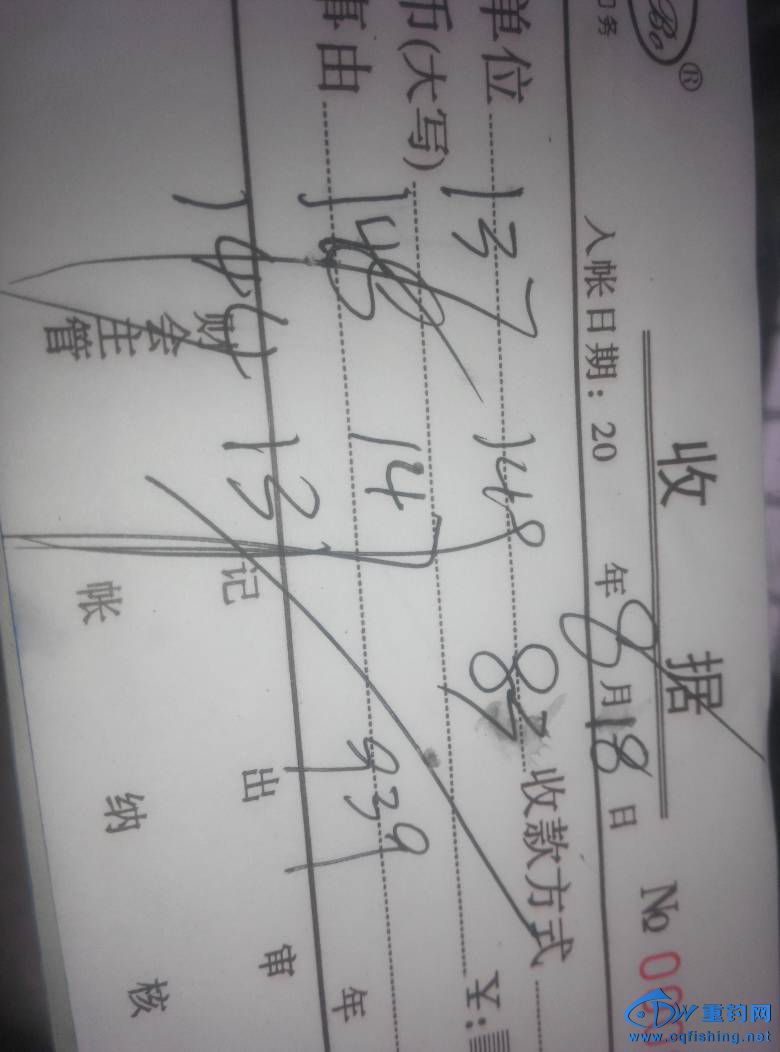 收 据
Bo ®
入帐日期：20 年8月18日
单位 137 148 87 收款方式
币(大写) ￥:
事由 148 147 939
财会主管 记帐 出纳 审核
重钓网
www.cqfishing.net